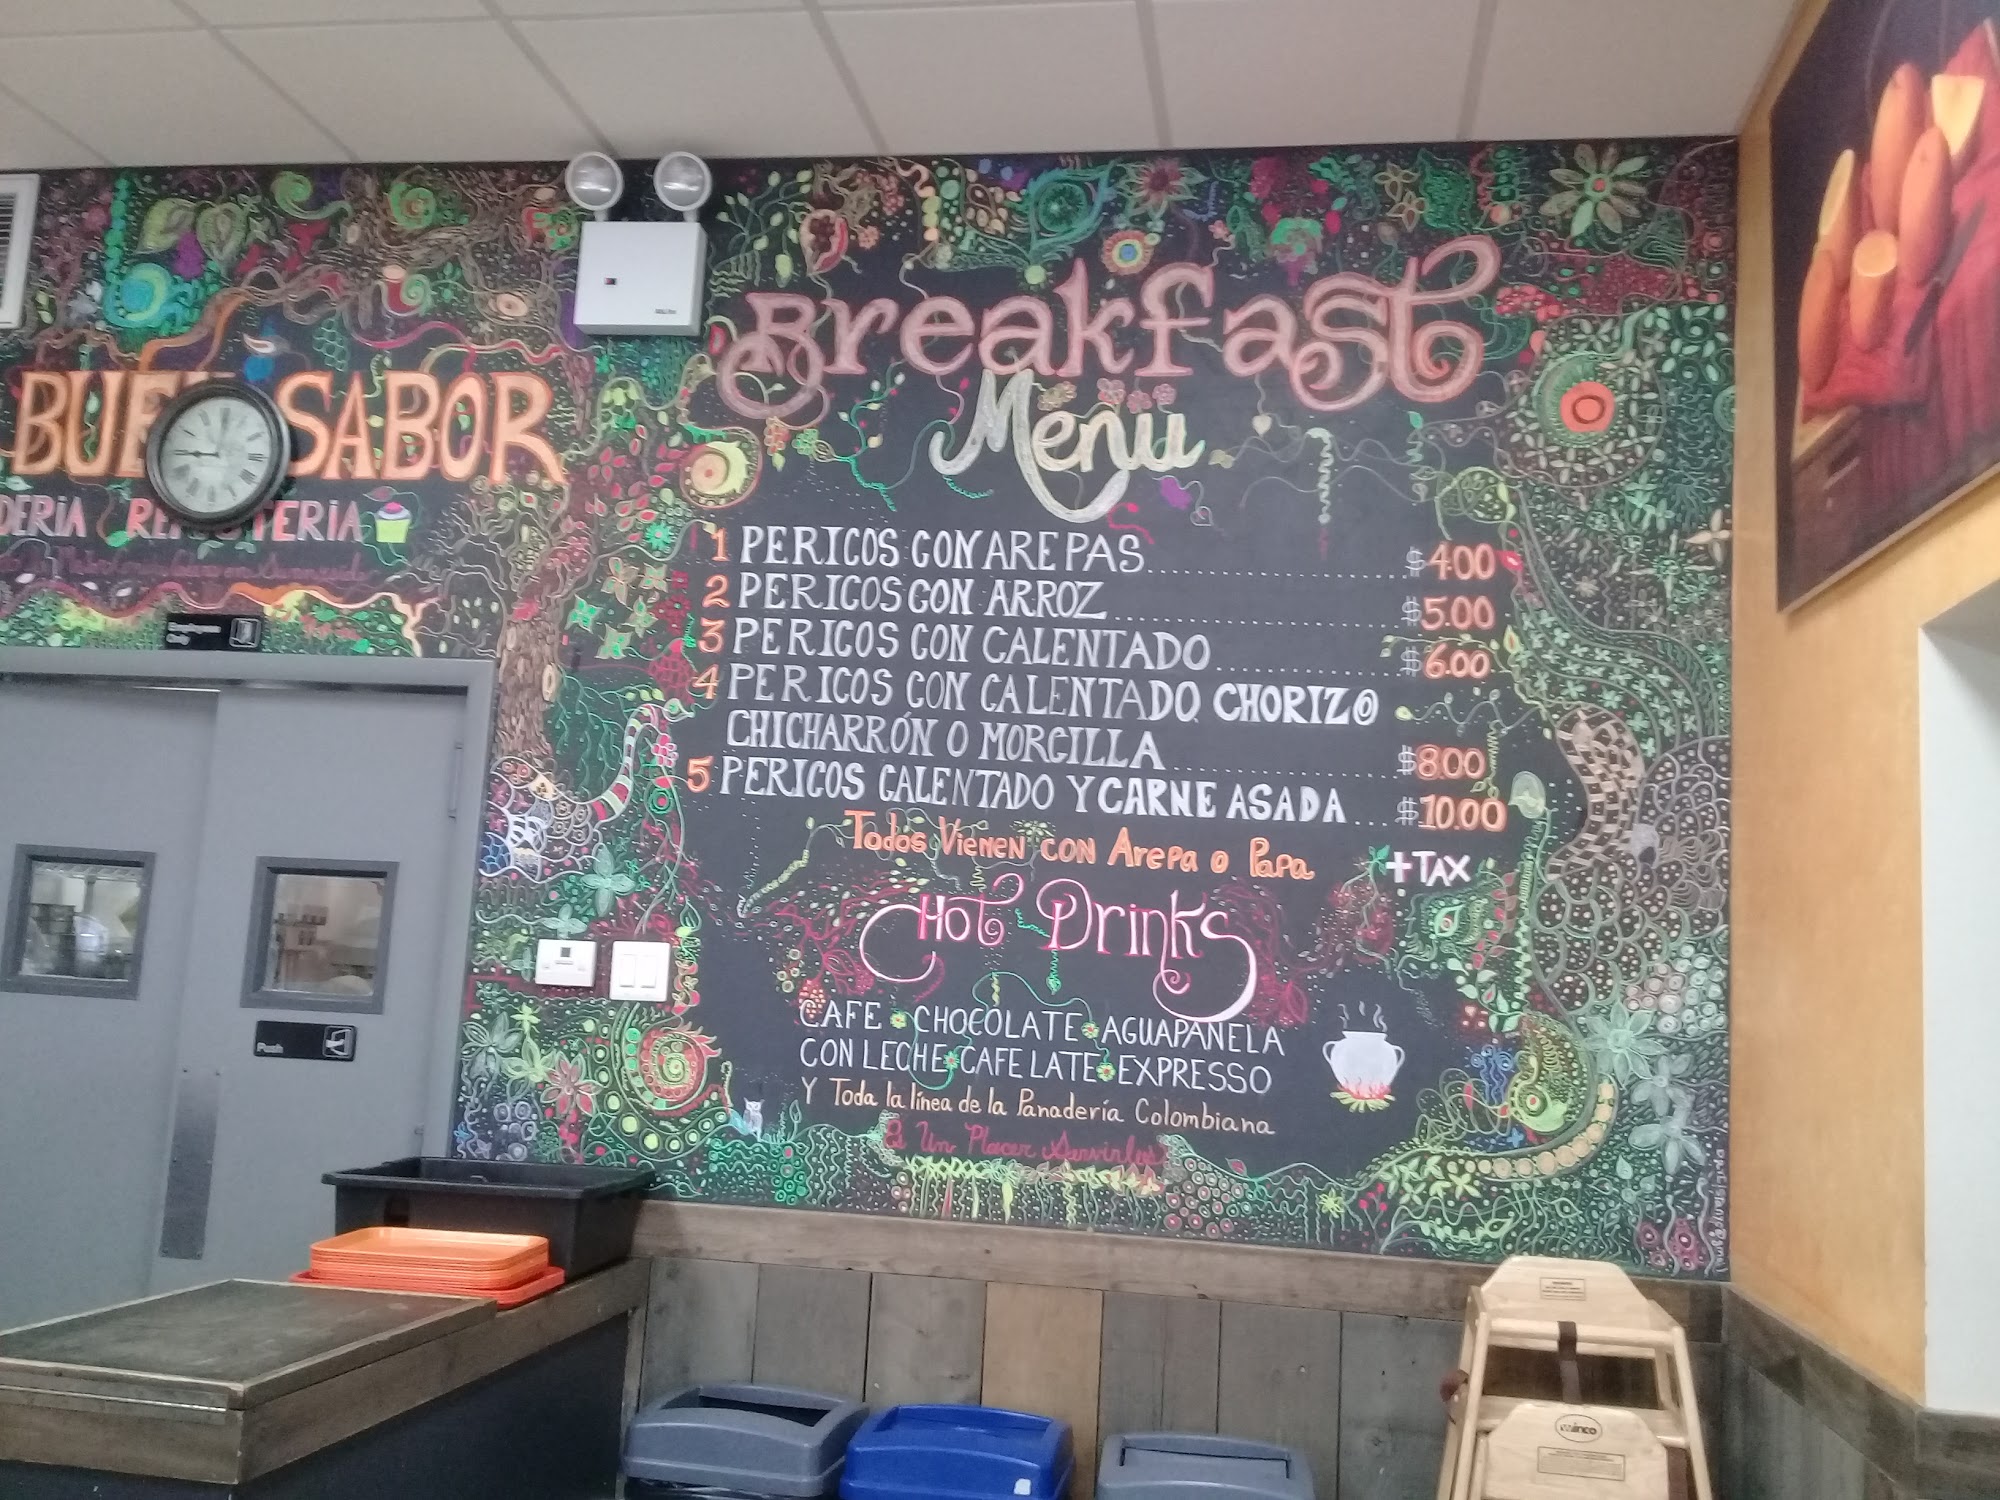 BUEN SABOR
DERIA REPOSTERIA
Employees
Only
Push
Breakfast
Menu
1 PERICOS CON AREPAS........................ $4.00
2 PERICOS CON ARROZ........................ $5.00
3 PERICOS CON CALENTADO................ $6.00
4 PERICOS CON CALENTADO CHORIZO
CHICHARRÓN O MORCILLA.................. $8.00
5 PERICOS CALENTADO Y CARNE ASADA.... $10.00
Todos Vienen con Arepa o Papa
+TAX
Hot Drinks
CAFE CHOCOLATE AGUAPANELA
CON LECHE CAFE LATE EXPRESSO
Y Toda la línea de la Panadería Colombiana
Es Un Placer Servirles
winco